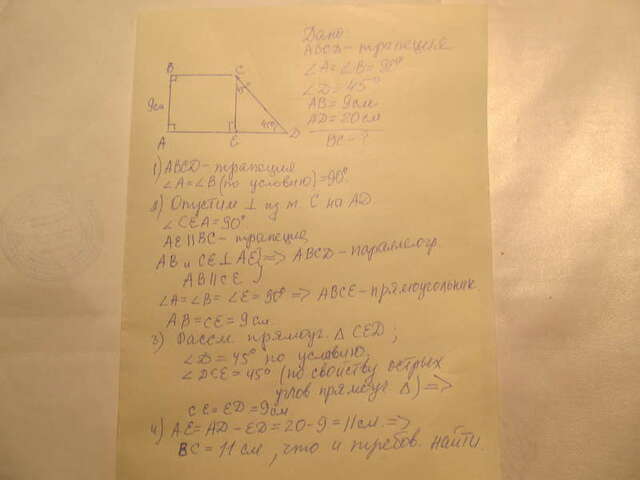 Дано
ABCD - трапеция
∠A = ∠B = 90°
∠D = 45°
AB = 9см
AD = 20см
BC - ?
B C
45°
9см
45°
A E D
1) ABCD - трапеция
∠A = ∠B (по условию) = 90°.
2) Опустим ⊥ из т. C на AD.
∠CEA = 90°
AE || BC - трапеция
AB и CE ⊥ AE } => ABCD - параллелогр.
AB || CE
∠A = ∠B = ∠E = 90° => ABCE - прямоугольник
AB = CE = 9см.
3) Рассм. прямоуг. △ CED;
∠D = 45° по условию;
∠DCE = 45° (по свойству острых
углов прямоуг. △) =>
CE = ED = 9см
4) AE = AD - ED = 20 - 9 = 11см. =>
BC = 11 см, что и требов. найти.